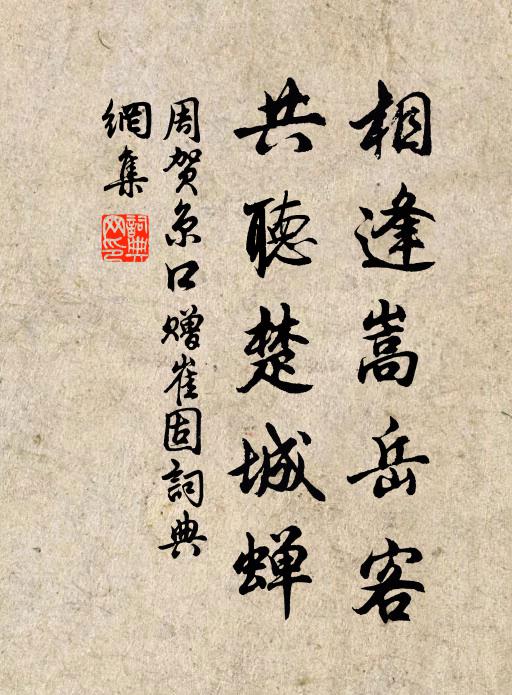 相逢嵩岳客
共聽楚城蝉
周贺京口赠崔固詞典
網集
詞典網印